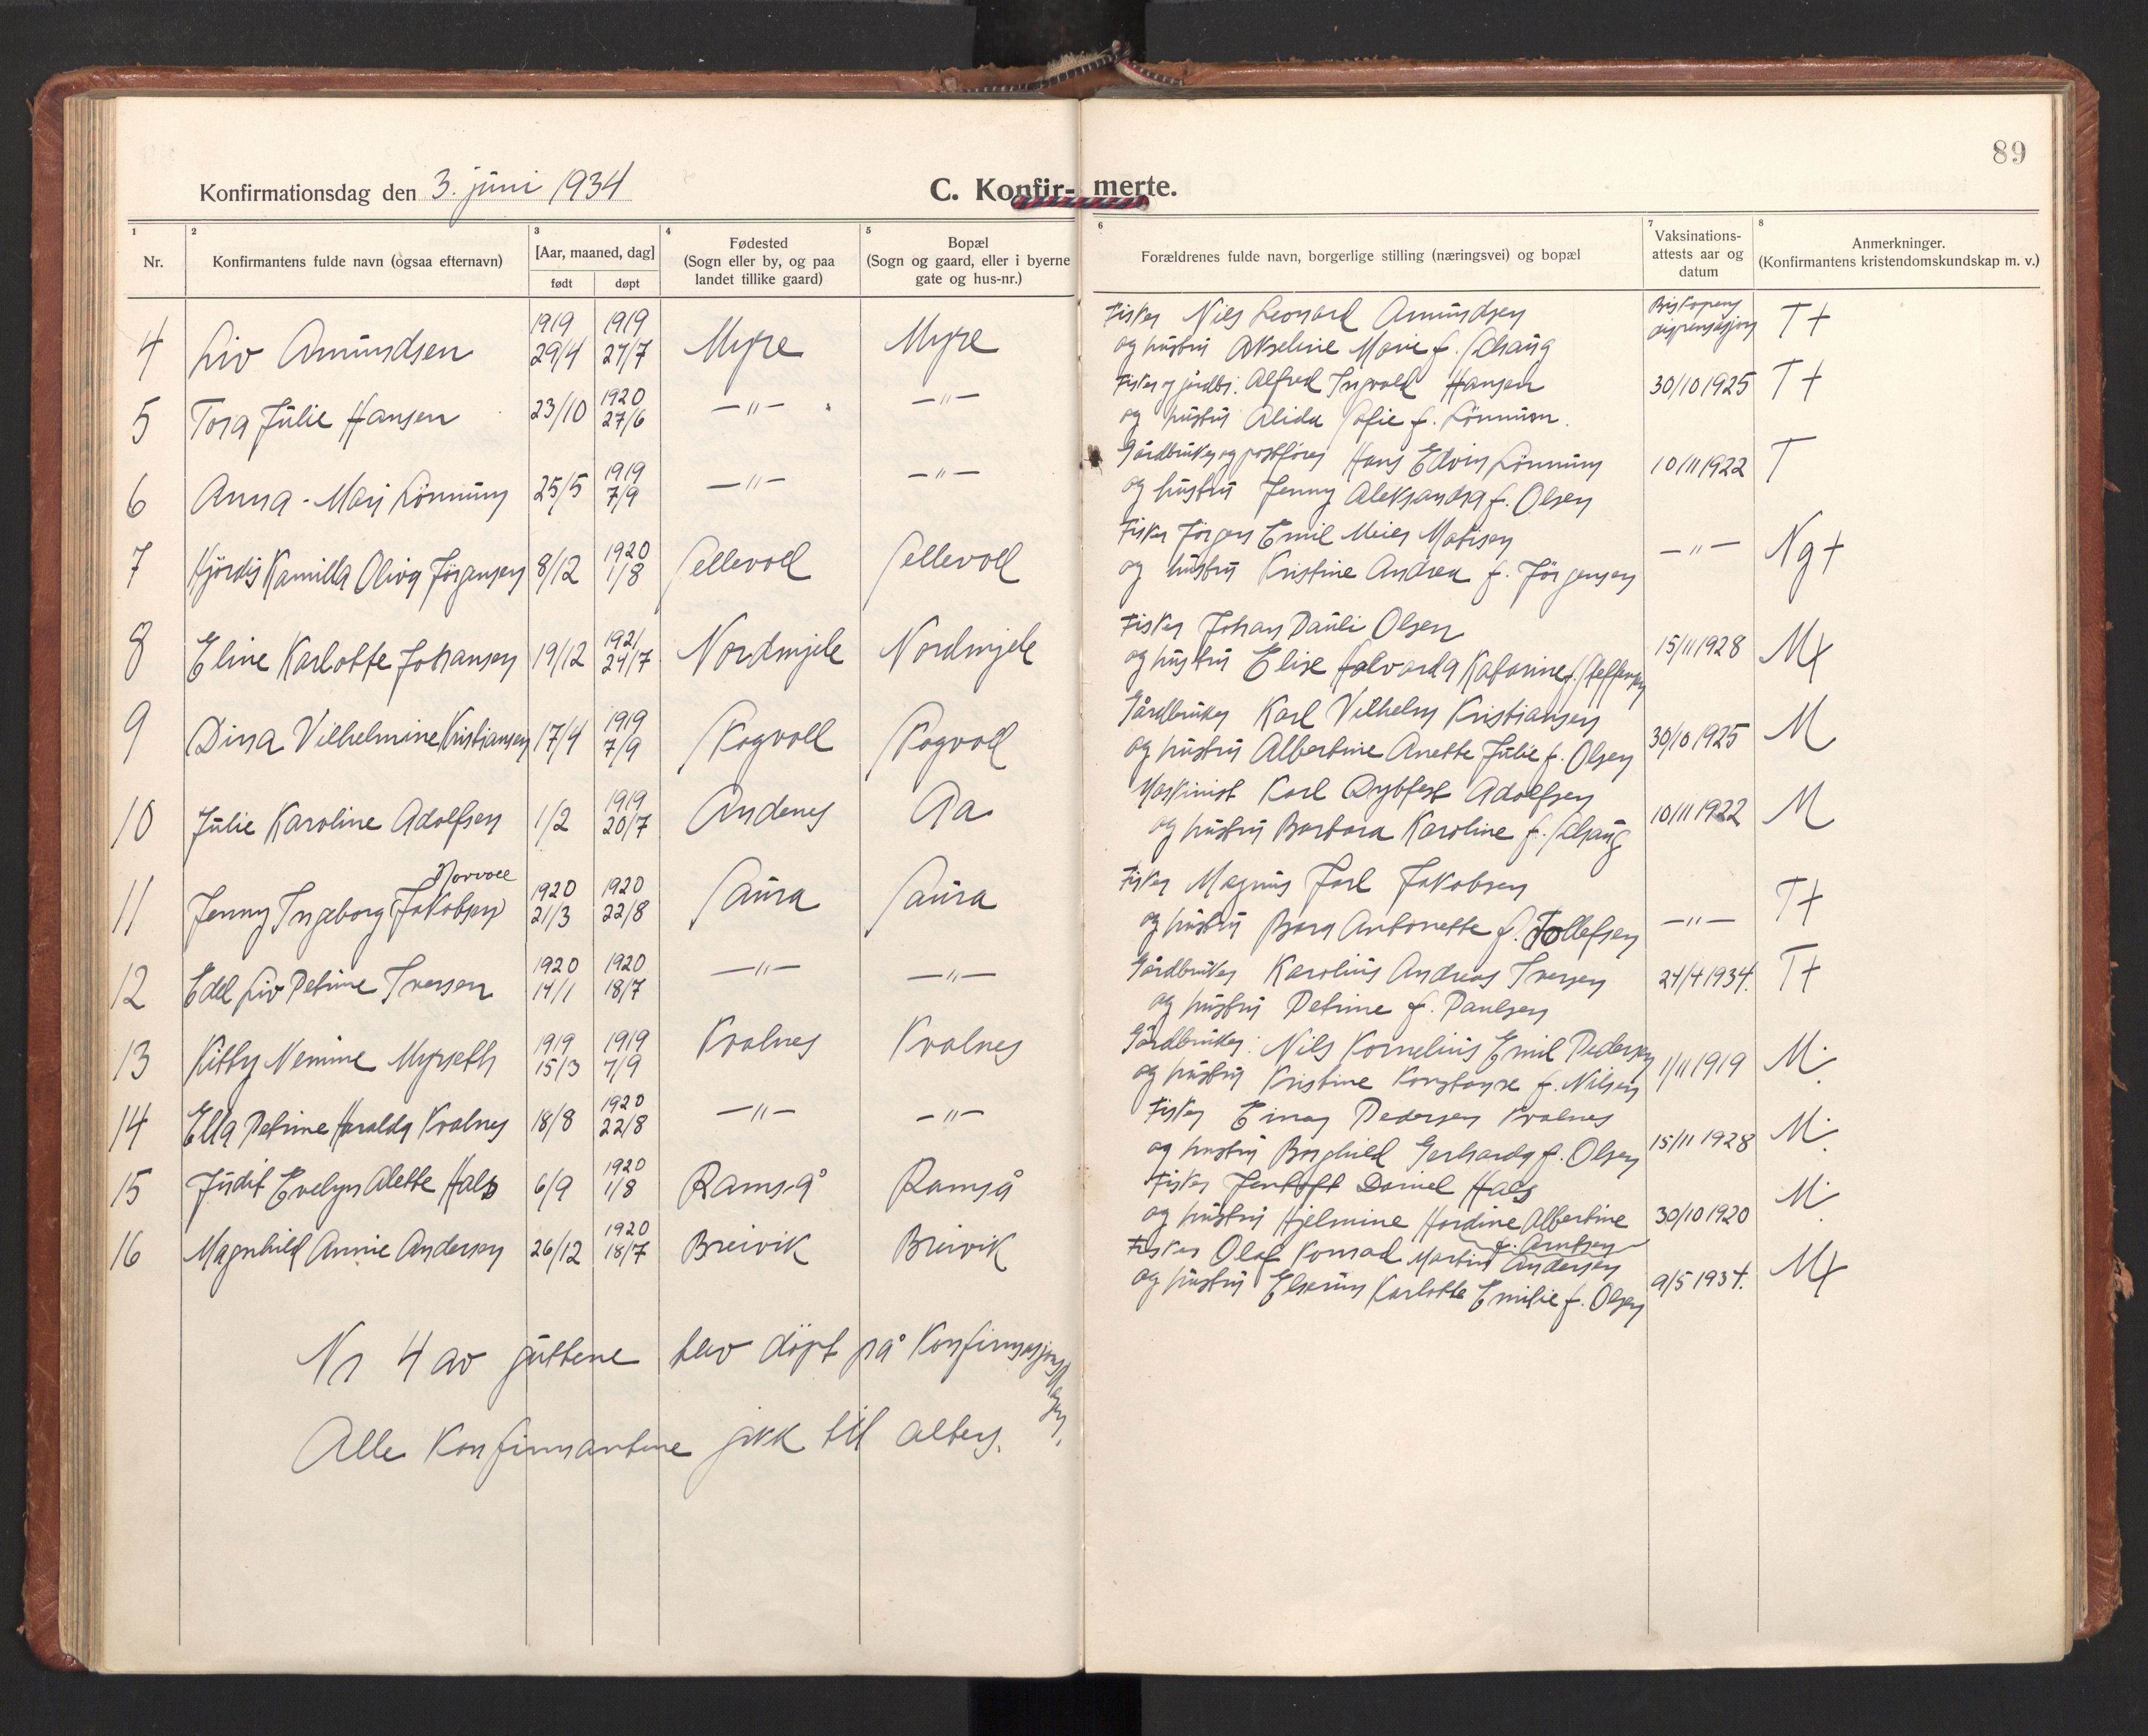 89
Konfirmationsdag den 3. juni 1934
C. Konfir- merte.
1 2 3 4 5 6 7 8
Nr.
Konfirmantens fulde navn (ogsaa efternavn)
[Aar, maaned, dag]
født døpt
Fødested
(Sogn eller by, og paa
landet tillike gaard)
Bopæl
(Sogn og gaard, eller i byerne
gate og hus-nr.)
Forældrenes fulde navn, borgerlige stilling (næringsvei) og bopæl
Vaksinations-
attests aar og
datum
Anmerkninger.
(Konfirmantens kristendomskundskap m. v.)
4 Liv Amundsen 1919 29/4 1919 27/7 Myre Myre
Fisker Nils Leonard Amundsen
og hustru Akseline Marie f. Schaug
Biskopens dispensasjon T+
5 Tora Julie Hansen 23/10 1920 27/6 —"— —"—
Fisker og jordbr. Alfred Ingvald Hansen
og hustru Alida Sofie f. Lönnum.
30/10 1925 T+
6 Anna-Mari Lönnum 25/5 1919 7/9 —"— —"—
Gårdbruker og postförer Hans Edvin Lönnum
og hustru Jenny Aleksandra f. Olsen
10/11 1922 T
7 Hjördis Kamilla Oliva Jörgensen 8/12 1920 1/8 Sellevoll Sellevoll
Fisker Jörgen Emil Meier Matisen
og hustru Kristine Andrea f. Jörgensen
—"— Ng+
8 Eline Karlotte Johansen 19/12 1921 24/7 Nordmjele Nordmjele
Fisker Johan Pauli Olsen
og hustru Elise Halvarda Katarine f. Steffensen
15/11 1928 M+
9 Dina Vilhelmine Kristiansen 17/4 1919 7/9 Skogvoll Skogvoll
Gårdbruker Karl Vilhelm Kristiansen
og hustru Albertine Anette Julie f. Olsen
30/10 1925 M
10 Julie Karoline Adolfsen 1/2 1919 20/7 Andenes Aa
Maskinist Karl Dybfest Adolfsen
og hustru Barbara Karoline f. Schaug
10/11 1922 M
Norvoll
11 Jenny Ingeborg Jakobsen 1920 21/3 1920 22/8 Saura Saura
Fisker Magnus Jarl Jakobsen
og hustru Borg Antonette f. Tollefsen
—"— T+
12 Edel Liv Petrine Iversen 1920 14/1 1920 18/7 —"— —"—
Gårdbruker Karolius Andreas Iversen
og hustru Petrine f. Paulsen
24/4 1934. T+
13 Kitty Nemine Myrseth 1919 15/3 1919 7/9 Kvalnes Kvalnes
Gårdbruker: Nils Kornelius Emil Pedersen
og hustru Kristine Konstanse f. Nilsen
1/11 1919 M.
14 Ella Petrine Haralda Kvalnes 18/8 1920 22/8 —"— —"—
Fisker Einar Pedersen Kvalnes
og hustru Borghild Gerharda f. Olsen
15/11 1928 M.
15 Judit Evelyn Alette Hals 6/9 1920 1/8 Ramså Ramså
Fisker Jentoft Daniel Hals
og hustru Hjelmine Hardine Albertine
f. Arntsen
30/10 1920 M.
16 Magnhild Annie Andersen 26/12 1920 18/7 Breivik Breivik
Fisker Olaf Konrad Martin Andersen
og hustru Karlotte Emilie f. Olsen
9/5 1934. M+
Nr 4 av guttene blev döpt på Konfirmasjonsdagen.
Alle Konfirmantene gikk til alters.